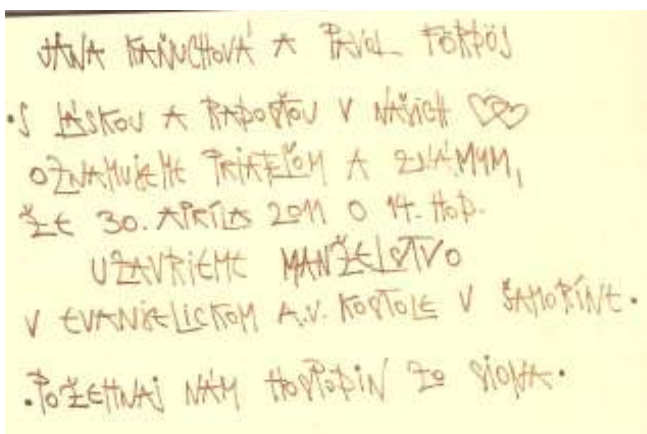 JANA KAŇUCHOVÁ A PAVOL FÖRDÖS
• S LÁSKOU A RADOSŤOU V NAŠICH
OZNAMUJEME PRIATEĽOM A ZNÁMYM,
ŽE 30. APRÍLA 2011 O 14. HOD.
UZAVRIEME MANŽELSTVO
V EVANJELICKOM A.V. KOSTOLE V ŠAMORÍNE.
• POŽEHNAJ NÁM HOSPODIN ZO SIONA.